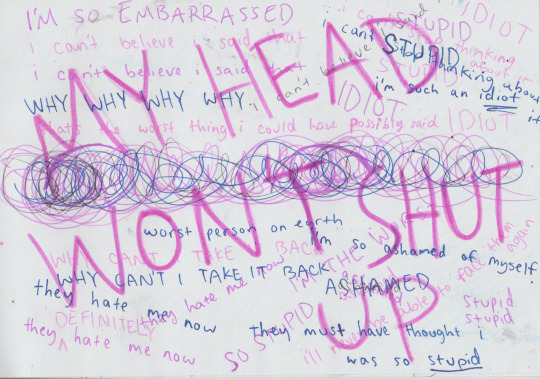 I'M SO EMBARRASSED
IDIOT
i can't believe i said that
i can't STUPID
i can't stop thinking about it
i can't believe i said that
STUPID
STUPID
MY HEAD
WHY WHY WHY WHY
i can't believe i said
i'm such an idiot
IDIOT
that's the worst thing i could have possibly said IDIOT
WON'T SHUT
worst person on earth
i'm so ashamed of myself
WHY CAN'T I TAKE IT BACK
I'M THE WORST
WHY CAN'T I TAKE IT BACK
ASHAMED
they hate me now
they hate me now
i'll never be able to face them again
UP
stupid
DEFINITELY
SO STUPID
stupid
they hate me now
they must have thought i
was so stupid